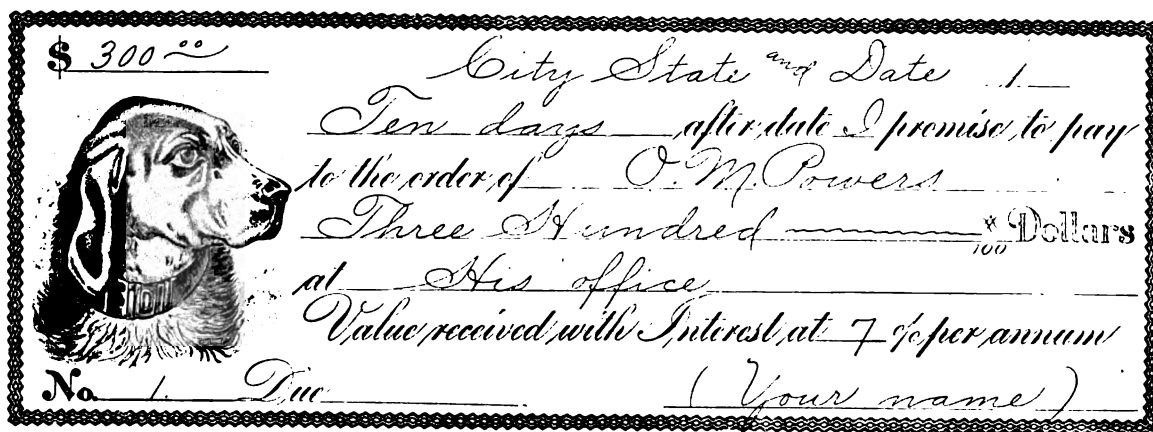 $ 300 00
City State and Date 1
Ten days after date I promise to pay
to the order of O. M. Powers
Three Hundred x/100 Dollars
at His office
Value received with Interest at 7 % per annum
No. 1. Due (Your name)